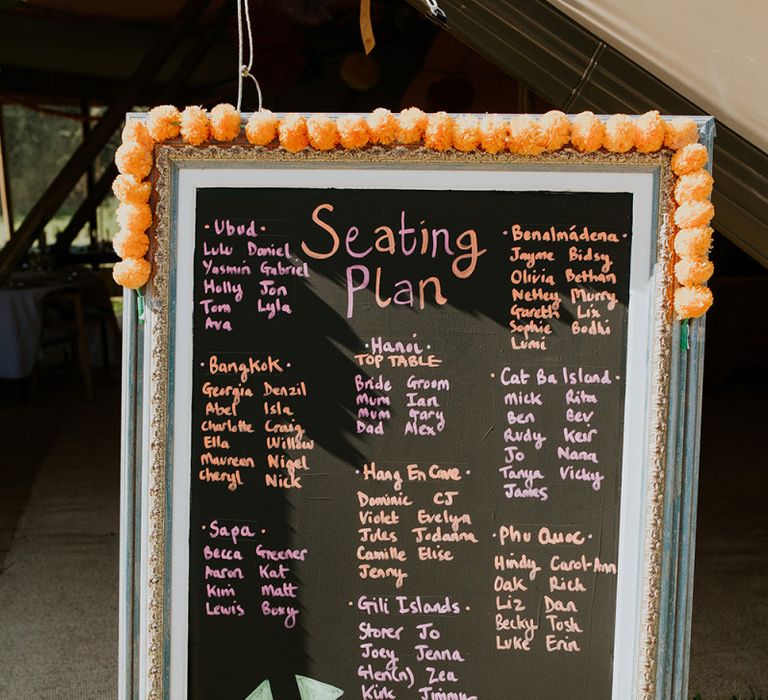 Seating
Plan
·Ubud·
Lulu Daniel
Yasmin Gabriel
Holly Jon
Tom Lyla
Ava
·Bangkok·
Georgia Denzil
Abel Isla
Charlotte Craig
Ella Willow
Maureen Nigel
Cheryl Nick
·Sapa·
Becca Greener
Aaron Kat
Kim Matt
Lewis Boxy
·Hanoi·
TOP TABLE
Bride Groom
Mum Ian
Mum Gary
Dad Alex
·Hang En Cave·
Dominic CJ
Violet Evelyn
Jules Jodanna
Camille Elise
Jenny
·Gili Islands·
Storer Jo
Joey Jenna
Glen(n) Zea
Kirk Jimmy
·Benalmádena·
Jayme Bidsy
Olivia Bethan
Netley Murry
Gareth Liz
Sophie Bodhi
Lumi
·Cat Ba Island·
Mick Rita
Ben Bev
Rudy Keir
Jo Nana
Tanya Vicky
James
·Phu Quoc·
Hindy Carol-Ann
Oak Rich
Liz Dan
Becky Tosh
Luke Erin